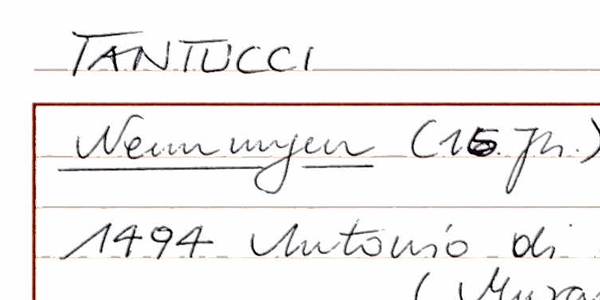 TANTUCCI
Nennungen (15. Jh.)
1494 Antonio di